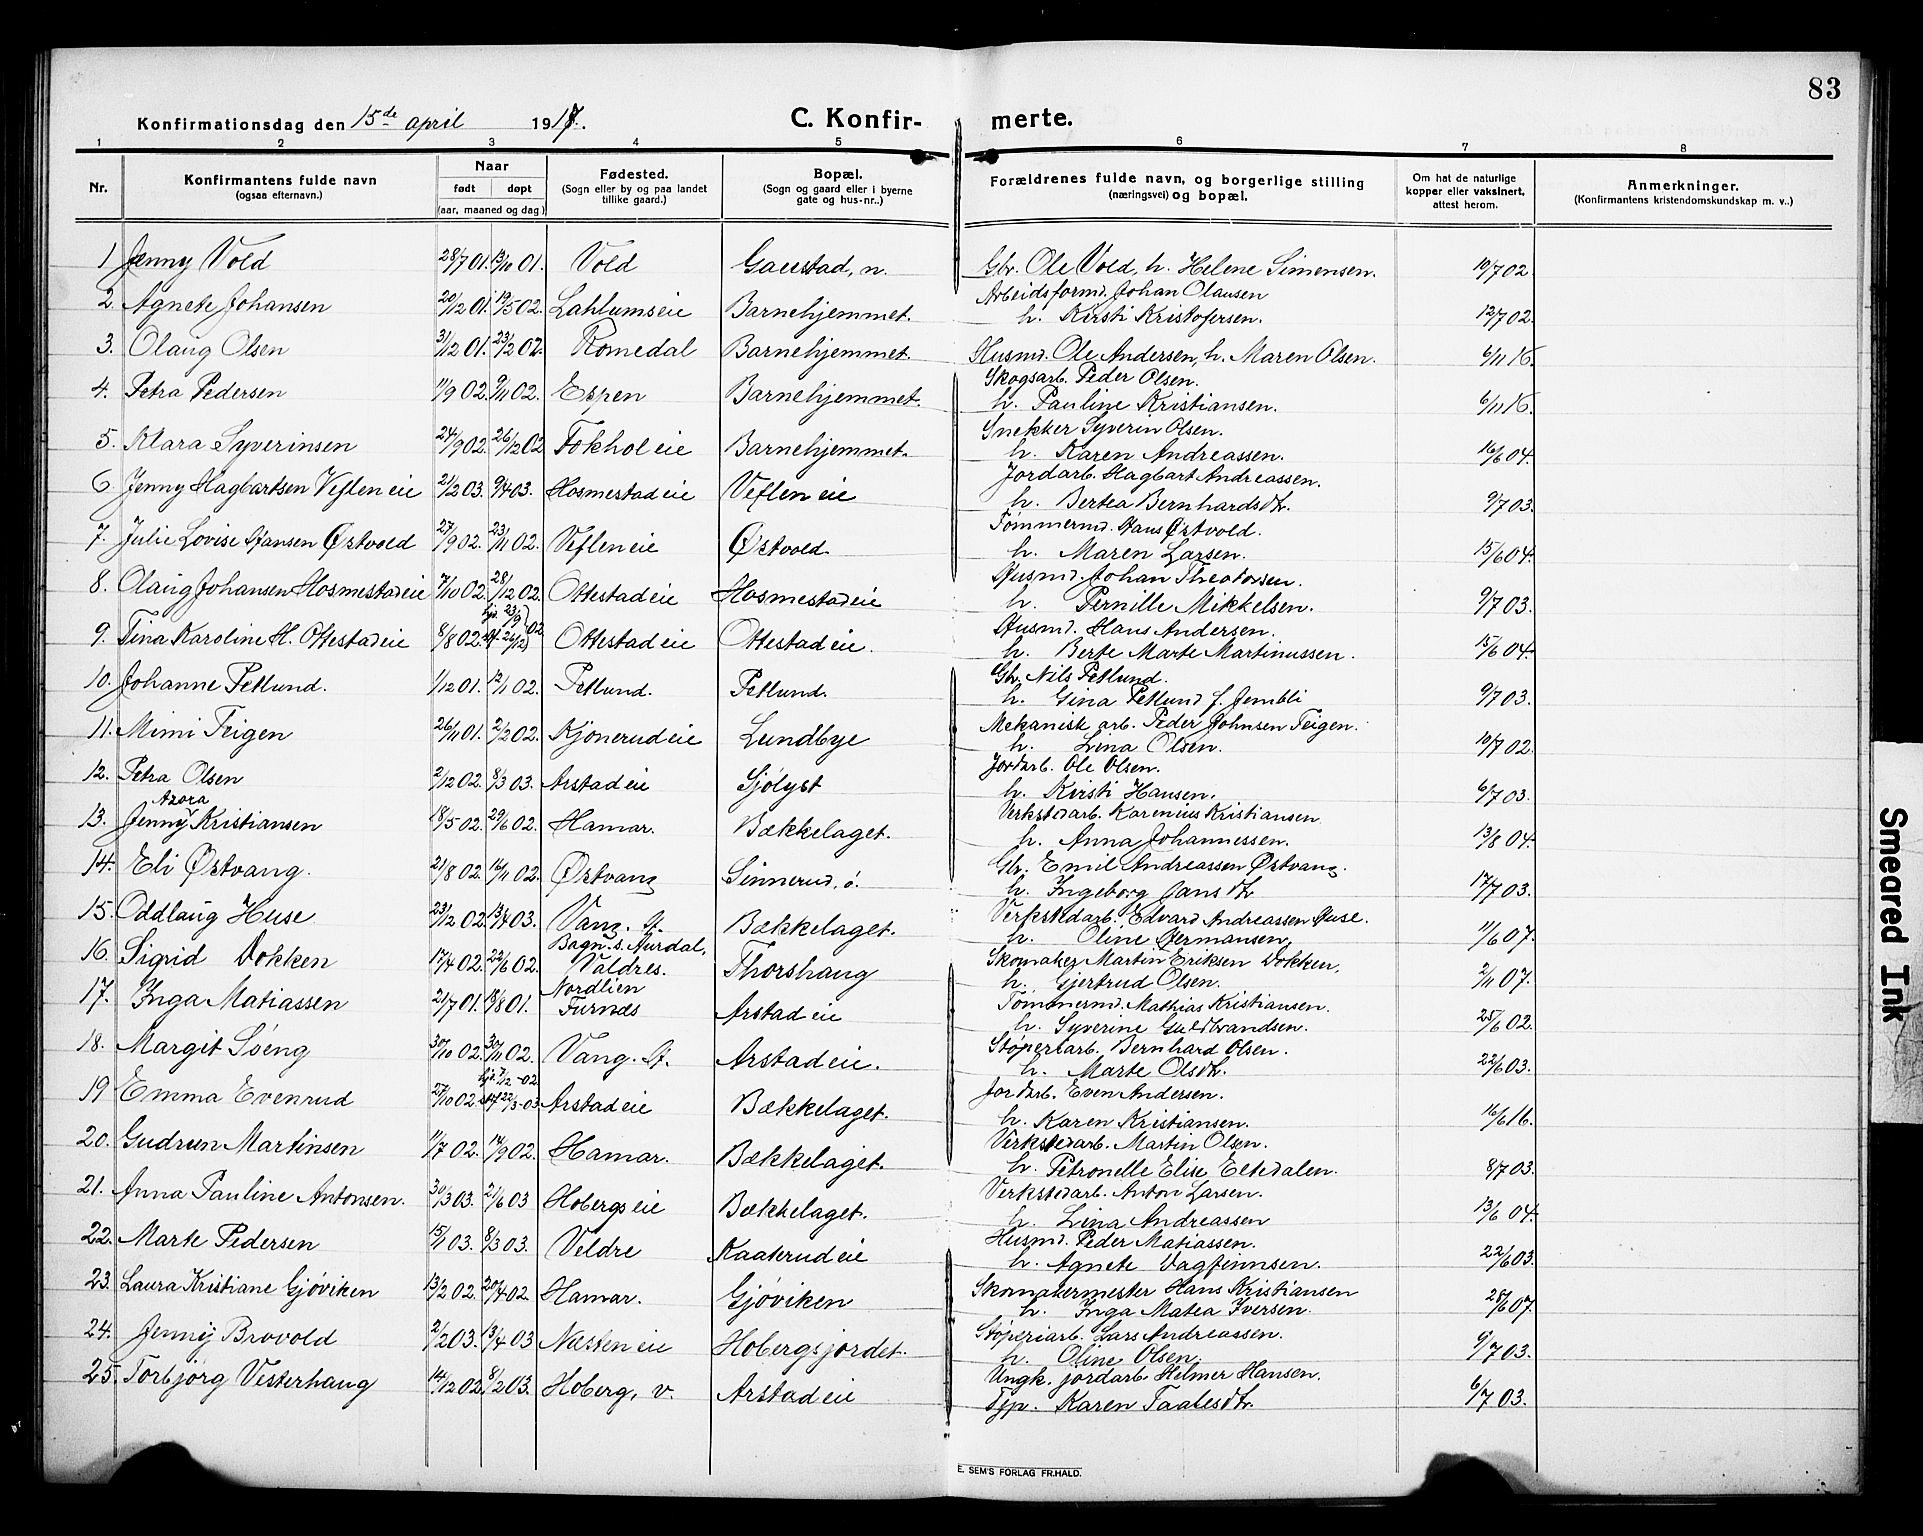 83
Konfirmationsdag den 15de april 1917.
C. Konfir- merte.
1 2 3 4 5 6 7 8
Nr.
Konfirmantens fulde navn
(ogsaa efternavn.)
Naar
født døpt
(aar, maaned og dag.)
Fødested.
(Sogn eller by og paa landet
tillike gaard.)
Bopæl.
(Sogn og gaard eller i byerne
gate og hus-nr..)
Forældrenes fulde navn, og borgerlige stilling
(næringsvei) og bopæl.
Om hat de naturlige
kopper eller vaksinert,
attest herom.
Anmerkninger.
(Konfirmantens kristendomskundskap m. v..)
1 Jenny Vold 28/7 01. 13/10 01. Vold Gaustad, n. Gbr. Ole Vold, h. Helene Simensen. 10/7 02.
2. Agnete Johansen 20/12 01. 19/5 02. Lahlumseie Barnehjemmet. Arbeidsformd. Johan Olausen
h. Kirsti Kristofersen. 12/7 02.
3. Olaug Olsen 31/12 01. 23/2 02. Romedal Barnehjemmet. Husmd. Ole Andersen, h. Maren Olsen. 6/11 16.
4. Petra Pedersen 11/9 02. 9/11 02. Espen Barnehjemmet. Skogsarb. Peder Olsen.
h. Pauline Kristiansen. 6/11 16.
5. Klara Syverinsen 24/9 02. 26/12 02 Fokhol eie Barnehjemmet. Snekker Syverin Olsen.
h. Karen Andreassen. 16/6 04.
6. Jenny Hagbartsen Veflen eie 21/2 03. 9/4 03. Hosmestad eie Veflen eie Jordarb. Hagbart Andreassen.
h. Bertea Bernhardsdtr. 9/7 03.
7. Julie Lovise Hansen Østvold 27/9 02. 23/11 02. Veflen eie Østvold Tømmermd. Hans Østvold.
h. Maren Larsen. 15/6 04.
8. Olaug Johansen Hosmestad eie 7/10 02. 28/12 02. Ottestad eie Hosmestad eie Husmd. Johan Theodorsen.
h. Pernille Mikkelsen. 9/7 03.
9. Tina Karoline H. Ottestad eie 8/8 02. hjd. 23/9 st. 26/12 02 Ottestad eie Ottestad eie. Husmd. Hans Andersen.
h. Berte Marte Martinussen. 15/6 04.
10. Johanne Petlund. 1/12 01. 12/1 02. Petlund. Petlund. Gbr. Nils Petlund.
h. Gina Petlund f. Jembli 9/7 03.
11. Mimi Teigen 26/11 01. 2/2 02. Kjønerud eie Lundbye Mekanisk arb. Peder Johnsen Teigen.
h. Lina Olsen. 10/7 02.
12. Petra Olsen 2/12 02. 8/3 03. Arstad eie Sjølyst Jordarb. Ole Olsen.
h. Kirsti Hansen. 6/7 03.
13. Jenny Azora Kristiansen 18/5 02. 29/6 02. Hamar. Bækkelaget. Verkstedarb. Karenius Kristiansen
h. Anna Johannessen. 13/8 04.
14. Eli Østvang. 21/8 02. 16/11 02. Østvang Sinnerud, ø. Gbr. Emil Andreassen Østvang.
h. Ingeborg Jansdtr 17/7 03.
15. Oddlaug Huse 23/12 02. 13/4 03. Vang. H. Bækkelaget. Verkstedarb. Edvard Andreassen Huse.
h. Oline Hermansen. 11/6 07.
16. Sigrid Dokken 17/4 02. 22/6 02. Bagn. s. Aurdal, Valdres. Thorshaug Skomaker Martin Eriksen Dokken.
h. Gjertrud Olsen. 2/11 07.
17. Inga Matiassen 21/7 01. 18/8 01. Nordlien Furnæs Arstad eie Tømmermd. Mathias Kristiansen.
h. Syverine Guldbrandsen. 25/6 02.
18. Margit Søeng 30/10 02. 30/11 02. Vang. H. Arstad eie. Støperiarb. Bernhard Olsen.
h. Marte Olsdtr. 22/6 03.
19 Emma Evenrud 27/10 02. hjd. 7/12 -02 st. 22/3 -03 Arstad eie Bækkelaget. Jordarb. Even Andersen.
h. Karen Kristiansen. 16/6 16.
20. Gudrun Martinsen 11/7 02. 14/9 02. Hamar. Bækkelaget. Verkstedarb. Martin Olsen.
h. Petronelle Elise Eltedalen. 8/7 03.
21. Anna Pauline Antonsen. 30/3 03. 21/6 03 Hobergs eie Bækkelaget. Verkstedarb. Anton Larsen.
h. Lina Andreassen 13/6 04.
22. Marte Pedersen 15/1 03. 8/3 03. Veldre Kaaterud eie Husmd. Peder Matiassen.
h. Agnete Dagfinnsen. 22/6 03.
23. Laura Kristiane Gjøviken 13/2 02. 20/4 02. Hamar. Gjøviken Skomakermester Hans Kristiansen
h. Inga Matea Iversen. 28/6 07.
24. Jenny Brovold 2/2 03. 13/4 03 Næsten eie Hobergsjordet. Støperiarb. Lars Andreassen.
h. Oline Olsen. 9/7 03.
25. Torbjørg Vesterhaug 14/12 02. 8/2 03. Hoberg, v. Arstad eie Ungk. jordarb. Helmer Hansen.
Tjp. Karen Taalesdtr. 6/7 03.
E. SEM'S FORLAG FR.HALD.
Smeared Ink